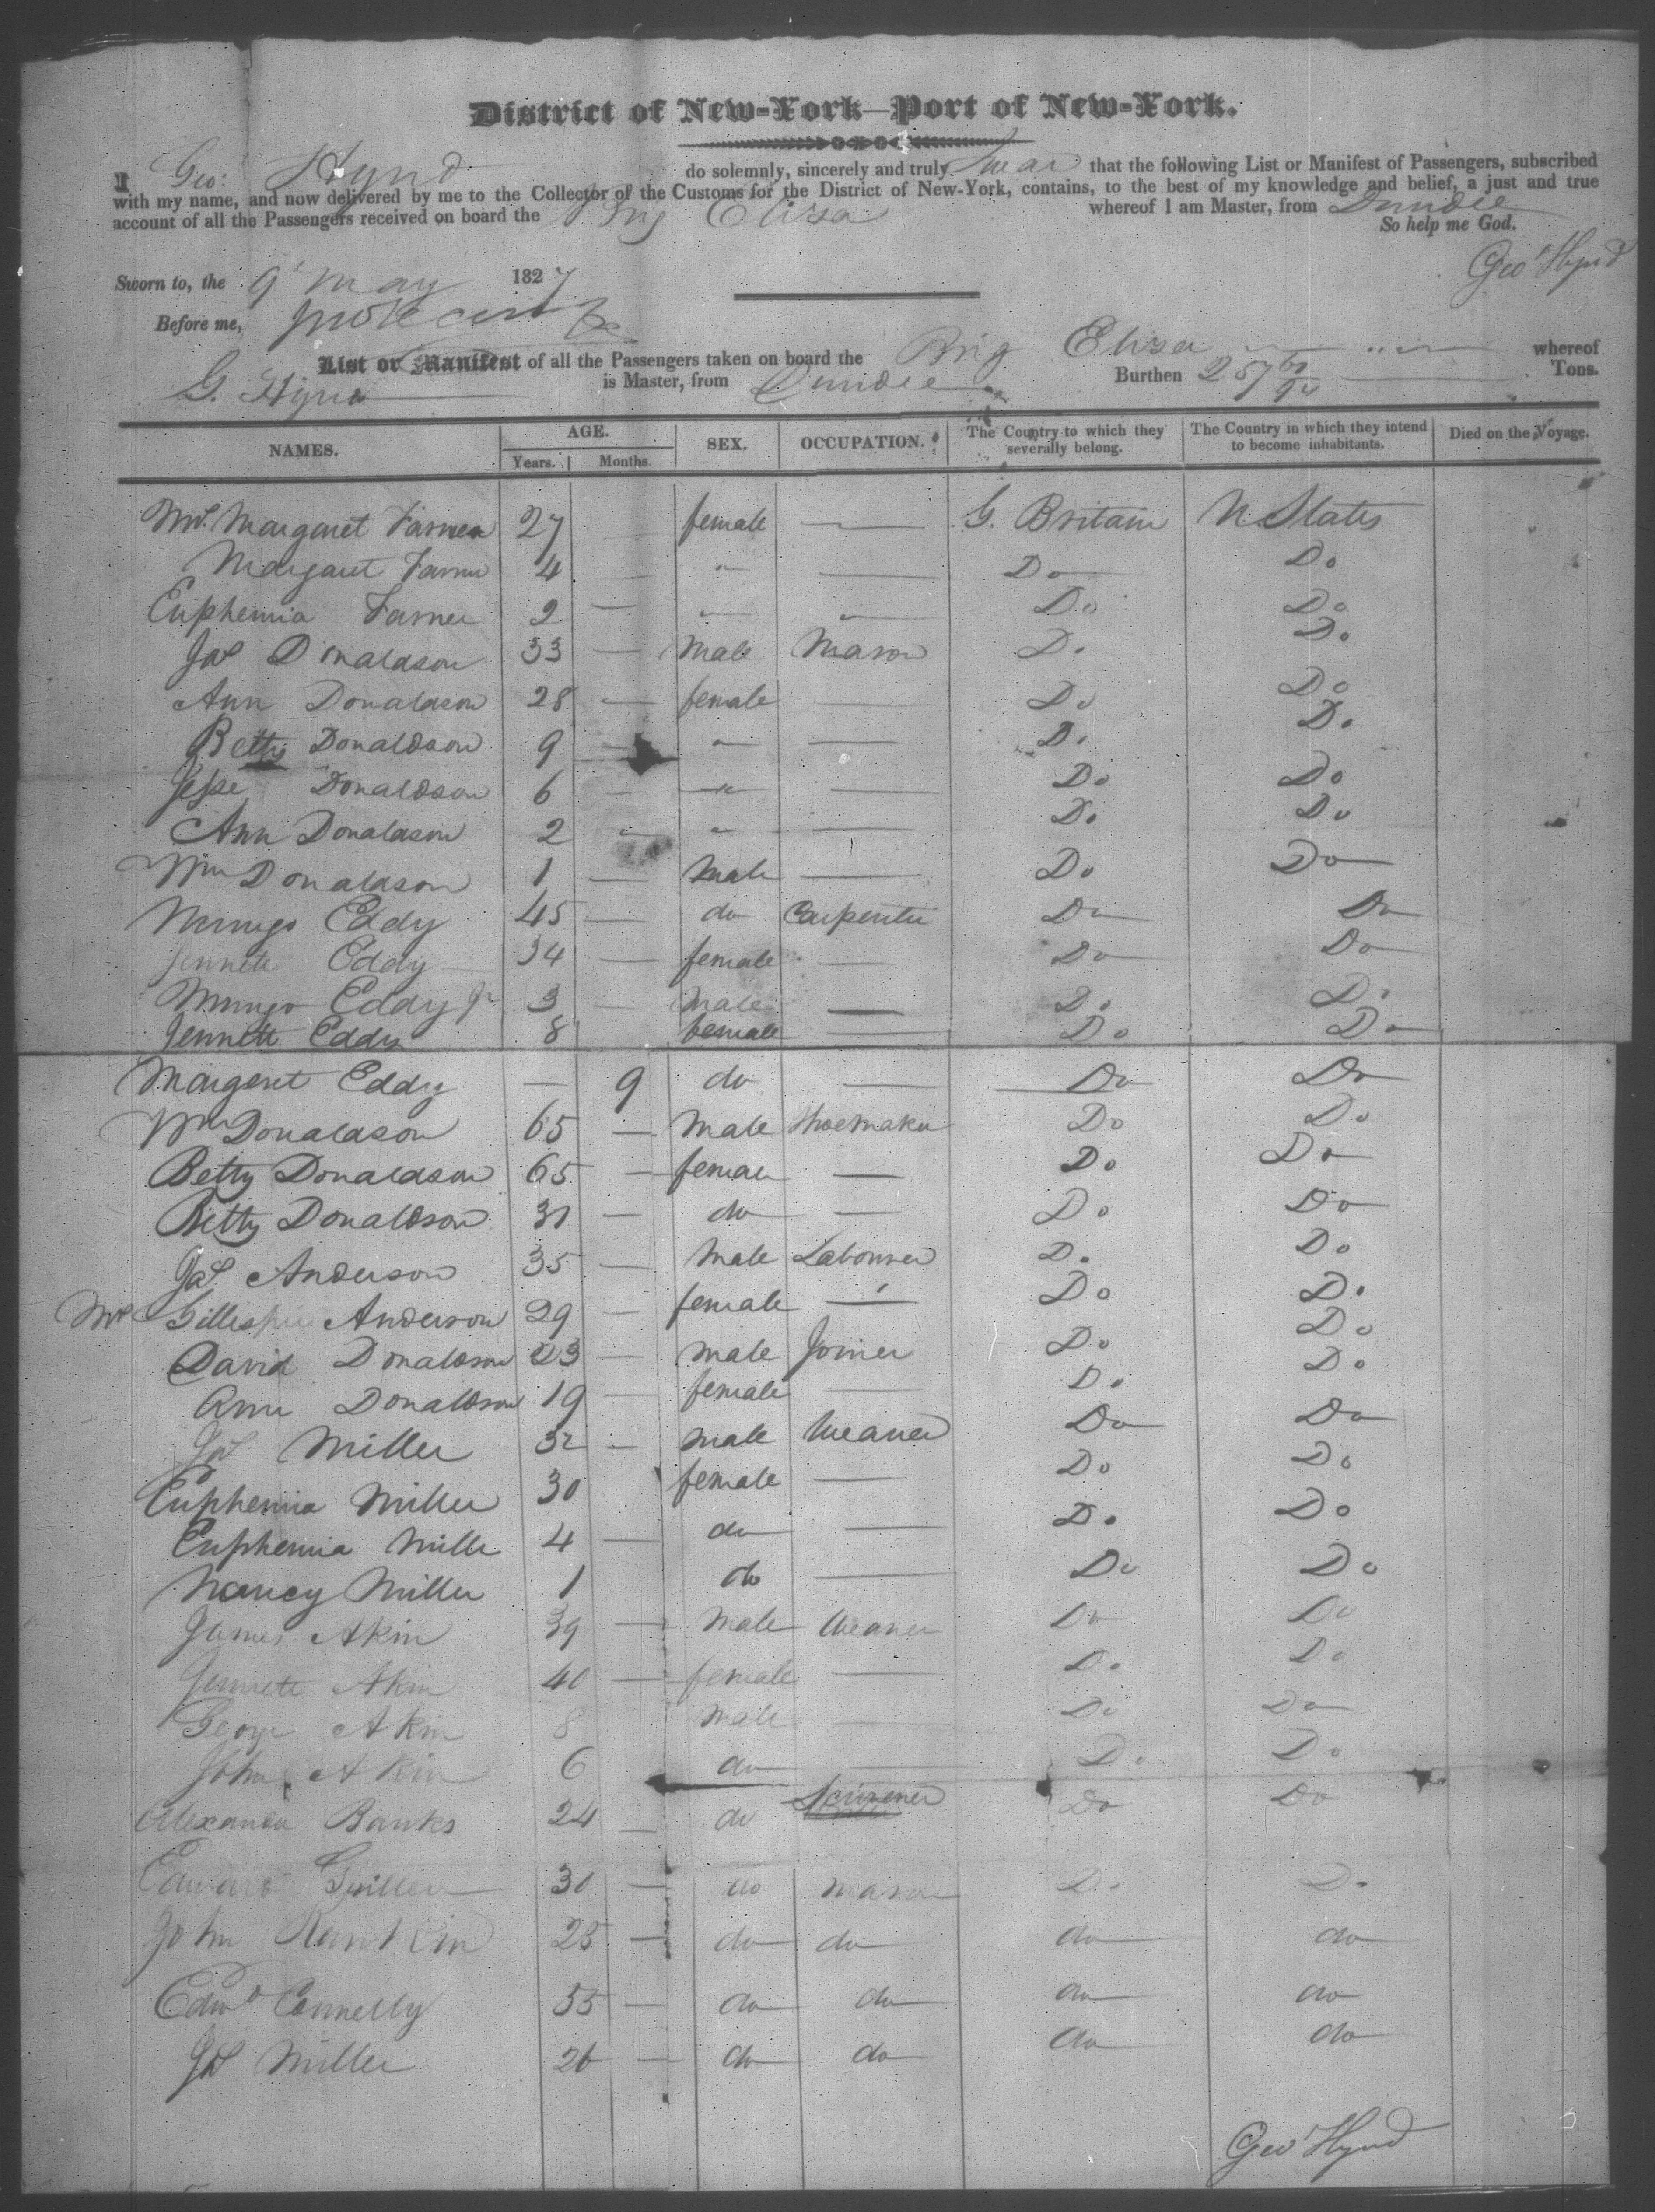 District of New-York—Port of New-York.
I Geo: Hynd do solemnly, sincerely and truly Swear that the following List or Manifest of Passengers, subscribed
with my name, and now delivered by me to the Collector of the Customs for the District of New-York, contains, to the best of my knowledge and belief, a just and true
account of all the Passengers received on board the Brig Eliza whereof I am Master, from Dundee
So help me God.
Geo Hynd
Sworn to, the 9 May 1827
Before me,
List or Manifest of all the Passengers taken on board the Brig Eliza whereof
G. Hynd is Master, from Dundee Burthen 257 Tons.
NAMES. AGE. Years. Months. SEX. OCCUPATION. The Country to which they severally belong. The Country in which they intend to become inhabitants. Died on the Voyage.
Mrs. Margaret 27 female — G. Britain U States
Margaret 4 — " — Do Do
Euphemia 2 — " — Do Do
Jas Donaldson 33 — Male Mason Do Do
Ann Donaldson 28 — female — Do Do
Betty Donaldson 9 — " — Do Do
Jesse Donaldson 6 — " — Do Do
Ann Donaldson 2 " " — Do Do
Wm Donaldson 1 — Male — Do Do
Mungo Eddy 45 — do Carpenter Do Do
Jennett Eddy 34 — female — Do Do
Mungo Eddy Jr 3 — Male — Do Do
Jennett Eddy 8 female — Do Do
Margaret Eddy — 9 do — Do Do
Wm Donaldson 65 — Male Shoemaker Do Do
Betty Donaldson 65 — female — Do Do
Betty Donaldson 31 — do — Do Do
Jas Anderson 35 — Male Labourer Do Do
Mrs Gillespie Anderson 29 — female — Do Do
David Donaldson 23 — Male Joiner Do Do
Ann Donaldson 19 — female — Do Do
Jas Miller 32 — Male Weaver Do Do
Euphemia Miller 30 female — Do Do
Euphemia Miller 4 — do — Do Do
Nancy Miller 1 do — Do Do
James Akin 39 — Male Weaver Do Do
Jennett Akin 40 — female — Do Do
George Akin 8 Male — Do Do
John Akin 6 do — Do Do
Alexander Banks 24 — do Scrivener Do Do
Edward 30 — do Mason Do Do
John Rankin 25 — do do do do
Edwd Connelly 35 — do do do do
Jas Miller 26 — do do do do
Geo Hynd